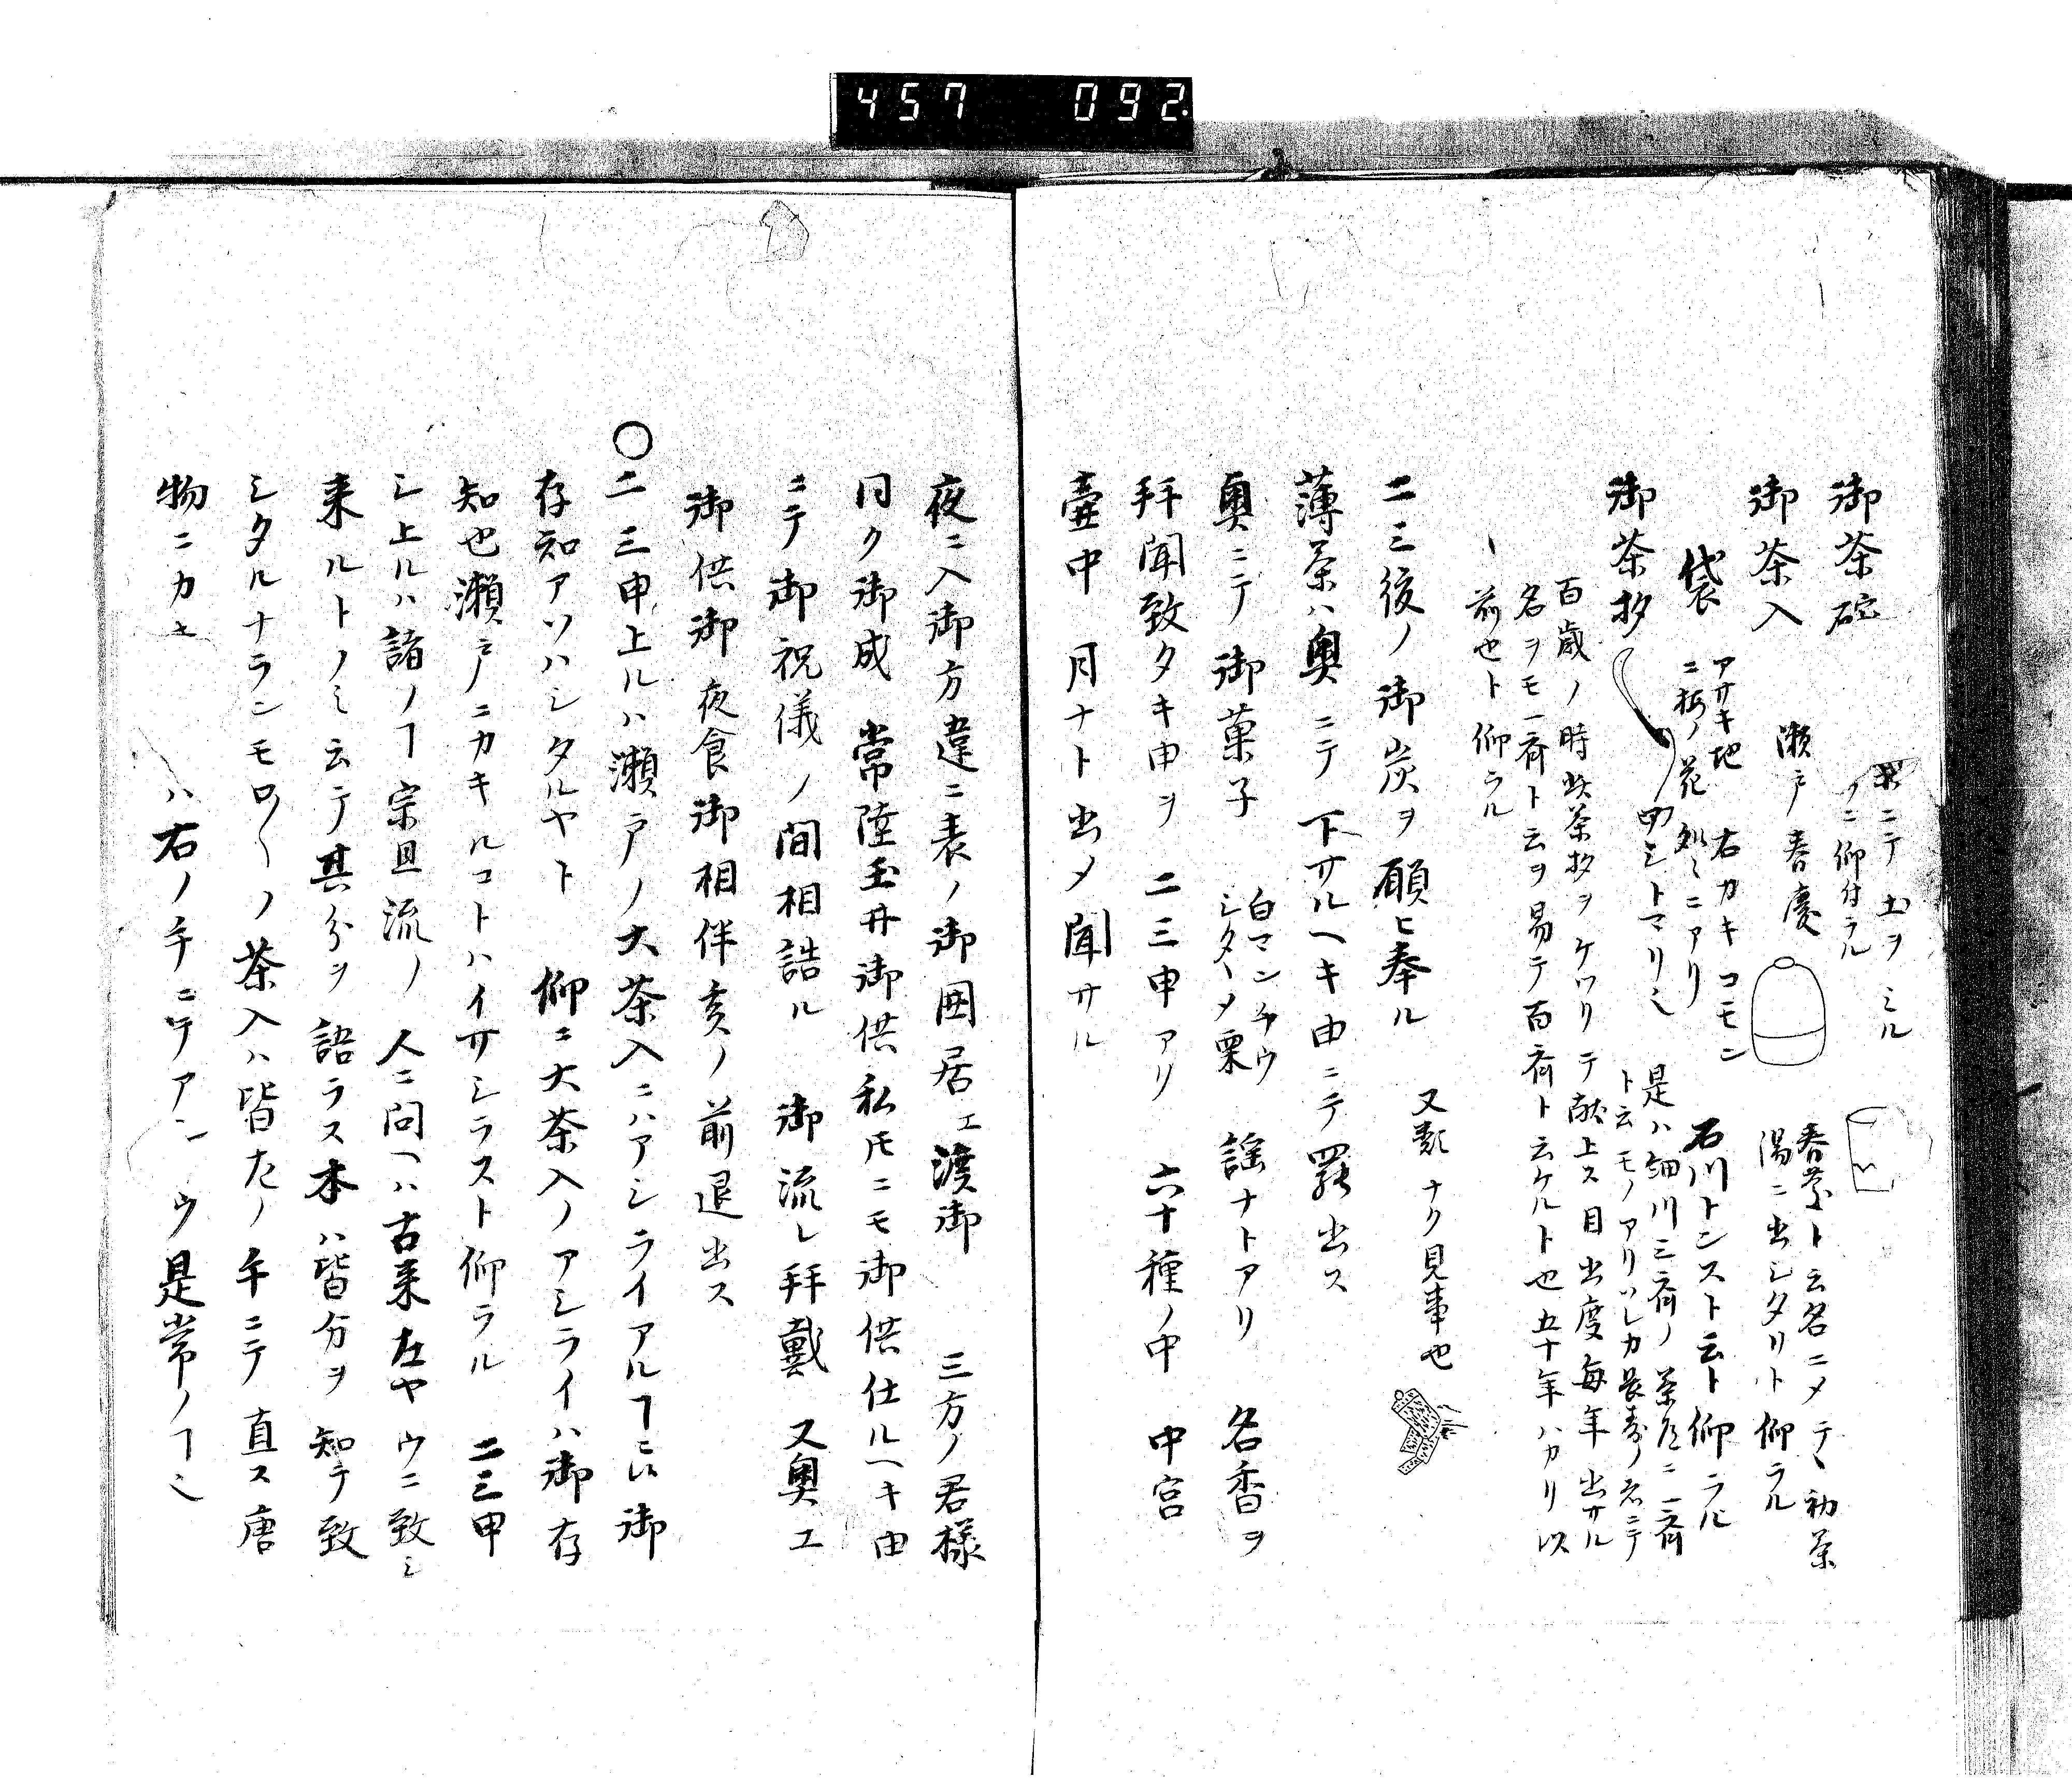 457 092
御茶碗
ニテ土ヲミル
ノニ仰付ラル
御茶入
瀬戸春慶
春慶ト云名ニメテヽ初茶
湯ニ出シタリト仰ラル
袋
アサキ地 右カキコモン
ニ梅ノ花処々ニアリ
石川トンスト云ト仰ラル
御茶杓
是ハ細川三斎ノ茶道ニ一斎
ト云モノアリツレカ長寿ノ者ニテ
百歳ノ時此茶杓ヲケツリテ献上ス目出度毎年出サル
名ヲモ一斎ト云ヲ易テ百斎ト云ケルト也五十年ハカリ以
前也ト仰ラル
二三後ノ御炭ヲ願ヒ奉ル
又類ナク見事也
薄茶ハ奥ニテ下サルヘキ由ニテ罷出ス
奥ニテ御菓子
白マンチウ
シタヽメ栗
謡ナトアリ 名香ヲ
拝聞致タキ由ヲ 二三申アリ 六十種ノ中 中宮
壷中 月ナト出メ聞サル
夜ニ入御方違ニ表ノ御囲居エ渡御 三方ノ君様
同ク御成 常陸玉井御供私共ニモ御供仕ルヘキ由
ニテ御祝儀ノ間相詰ル 御流レ拝戴 又奥エ
御供御夜食御相伴亥ノ前退出ス
○二三申上ルハ瀬戸ノ大茶入ニハアシライアルヿニ候御
存知アソハシタルヤト 仰ニ大茶入ノアシライハ御存
知也瀬戸ノニカキルコトハイサシラスト仰ラル 二三申
シ上ルハ諸ノヿ宗旦流ノ人ニ問ヘハ古来左ヤウニ致シ
来ルトノミ云テ其分ヲ語ラス本ハ皆分ヲ知テ致
シタルナランモロ〱ノ茶入ハ皆左ノ手ニテ直ス唐
物ニカ
ハ右ノ手ニテアン ウ是常ノヿ也